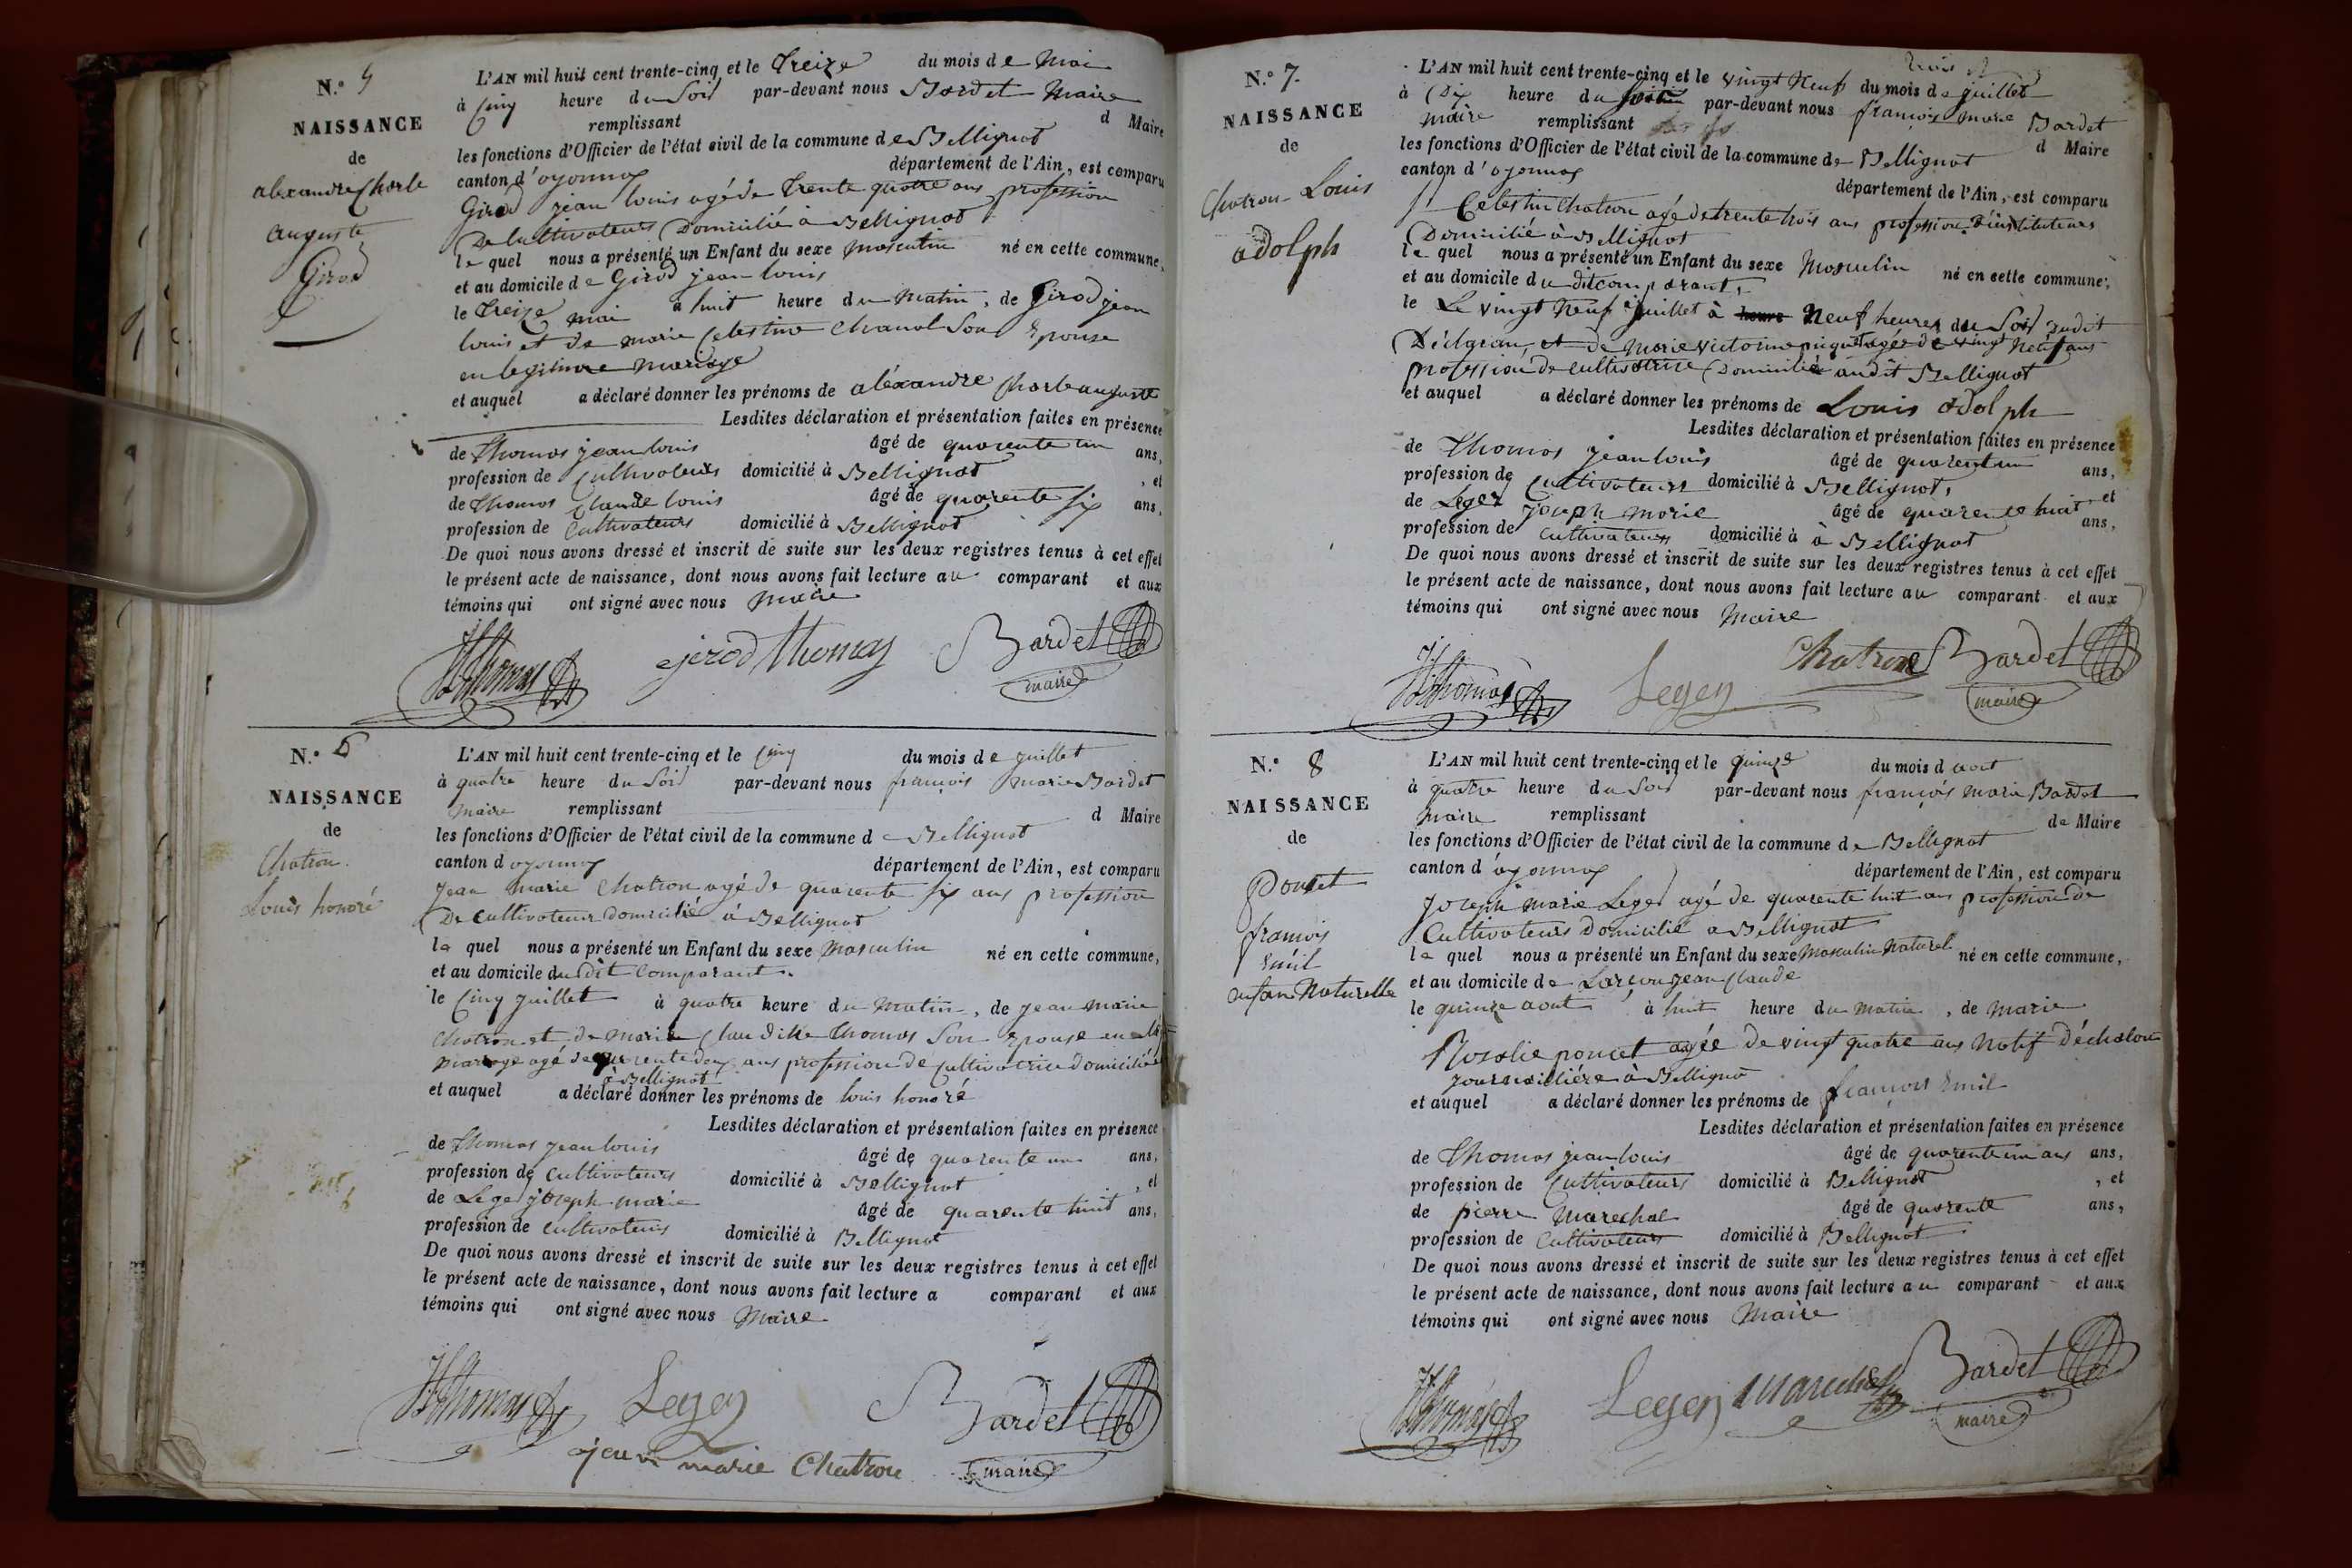 N.° 5
NAISSANCE
de
alexandre Charle
auguste
Girod
L'AN mil huit cent trente-cinq et le treize du mois de Mai
à Cinq heure du Soir par-devant nous Bardet Maire
remplissant d Maire
les fonctions d'Officier de l'état civil de la commune de Bellignat
canton d'oyonnax département de l'Ain, est comparu
Girod jean louis agé de trente quatre ans profession
De Cultivateur Domicilié à Bellignat
le quel nous a présenté un Enfant du sexe masculin né en cette commune,
et au domicile de Girod jean louis
le treize mai à huit heure du matin, de Girod jean
louis et de marie Celestine Chanal Son Epouse
en legitimre Mariage
et auquel a déclaré donner les prénoms de aléxandre Charle auguste
Lesdites déclaration et présentation faites en présence
de Thomas jean louis âgé de quarente un ans,
profession de Cultivateur domicilié à Bellignat , et
de Thomas Claude louis âgé de quarente six ans,
profession de Cultivateurs domicilié à Bellignat
De quoi nous avons dressé et inscrit de suite sur les deux registres tenus à cet effet
le présent acte de naissance, dont nous avons fait lecture au comparant et aux
témoins qui ont signé avec nous maire
Thomas girod Thomas Bardet
maire
N.° 6
NAISSANCE
de
Chatron
Louis honoré
L'AN mil huit cent trente-cinq et le Cinq du mois de juillet
à quatre heure du Soir par-devant nous françois marie Bardet
maire remplissant d Maire
les fonctions d'Officier de l'état civil de la commune de Bellignat
canton d oyonnax département de l'Ain, est comparu
Jean marie Chatron agé de quarente six ans profession
De Cultivateur domicilié à Bellignat
le quel nous a présenté un Enfant du sexe masculin né en cette commune,
et au domicile du dit Comparant
le Cinq juillet à quatre heure du Matin, de jean marie
Chatron et de marie Claudine Thomas Son Epouse en
mariage agé de quarente deux ans profession de Cultivatrice domiciliée
à Bellignat
et auquel a déclaré donner les prénoms de louis honoré
Lesdites déclaration et présentation faites en présence
de Thomas jean louis âgé de quarente un ans,
profession de Cultivateurs domicilié à Bellignat , et
de Leger joseph marie âgé de quarente huit ans,
profession de cultivateurs domicilié à Bellignat
De quoi nous avons dressé et inscrit de suite sur les deux registres tenus à cet effet
le présent acte de naissance, dont nous avons fait lecture a comparant et aux
témoins qui ont signé avec nous Maire
Thomas Leger Bardet
jean marie Chatron maire
N.° 7
NAISSANCE
de
Chatron Louis
adolph
L'AN mil huit cent trente-cinq et le vingt Neuf du mois de juillet
à Dix heure du par-devant nous françois marie Bardet
maire remplissant d Maire
les fonctions d'Officier de l'état civil de la commune de Bellignat
canton d'oyonnax département de l'Ain, est comparu
Celestin Chatron agé de trente trois ans profession d'instituteur
Domicilié à Bellignat
le quel nous a présenté un Enfant du sexe Masculin né en cette commune,
et au domicile du dit comparant,
le Le vingt Neuf juillet à heure Neuf heures du Soir dudit
et de marie victorine piquet agée de vingt Neuf ans
profession de cultivatrice Domiciliée audit Bellignat
et auquel a déclaré donner les prénoms de Louis adolph
Lesdites déclaration et présentation faites en présence
de Thomas jean louis âgé de quarent un ans,
profession de Cultivateurs domicilié à Bellignat, et
de Leger joseph marie âgé de quarente huit ans,
profession de Cultivateurs domicilié à à Bellignat
De quoi nous avons dressé et inscrit de suite sur les deux registres tenus à cet effet
le présent acte de naissance, dont nous avons fait lecture au comparant et aux
témoins qui ont signé avec nous Maire
Thomas Leger Chatron Bardet
maire
N.° 8
NAISSANCE
de
Poncet
françois
Emil
enfan Naturelle
L'AN mil huit cent trente-cinq et le quinze du mois d aout
à quatre heure du Soir par-devant nous françois marie Bardet
maire remplissant de Maire
les fonctions d'Officier de l'état civil de la commune de Bellignat
canton d'oyonnax département de l'Ain, est comparu
Joseph marie Leger agé de quarente huit ans profession de
Cultivateurs domicilié a Bellignat
le quel nous a présenté un Enfant du sexe Masculin Naturel né en cette commune,
et au domicile de jean Claude
le quinze aout à huit heure du matin, de marie
Rosalie poncet agée de vingt quatre ans Natif d'échalon
journailliére à Bellignat
et auquel a déclaré donner les prénoms de françois Emil
Lesdites déclaration et présentation faites en présence
de Thomas jean louis âgé de quarente un ans ans,
profession de Cultivateurs domicilié à Bellignat , et
de pierre Marechal âgé de quarente ans,
profession de Cultivateurs domicilié à Bellignat
De quoi nous avons dressé et inscrit de suite sur les deux registres tenus à cet effet
le présent acte de naissance, dont nous avons fait lecture au comparant et aux
témoins qui ont signé avec nous Maire
Thomas Leger Marechal Bardet
maire